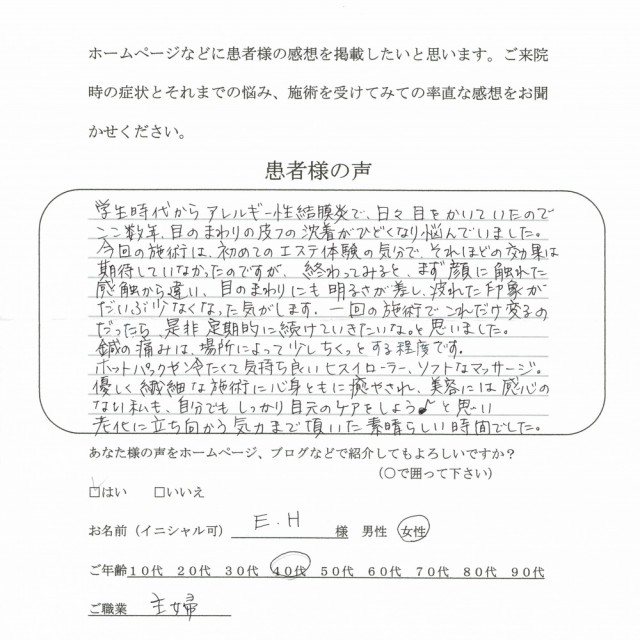 ホームページなどに患者様の感想を掲載したいと思います。ご来院
時の症状とそれまでの悩み、施術を受けてみての率直な感想をお聞
かせください。
患者様の声
学生時代からアレルギー性結膜炎で、日々目をかいていたので
ここ数年、目のまわりの皮フの沈着がひどくなり悩んでいました。
今回の施術は、初めてのエステ体験の気分で、それほどの効果は
期待していなかったのですが、終わってみると、まず顔に触れた
感触から違い、目のまわりにも明るさが差し、疲れた印象が
だいぶ少なくなった気がします。一回の施術でこれだけ変るの
だったら、是非定期的に続けていきたいな。と思いました。
鍼の痛みは、場所によって少しちくっとする程度です。
ホットパックや冷たくて気持ち良いヒスイローラー、ソフトなマッサージ。
優しく繊細な施術に心身ともに癒やされ、美容には感心の
ない私も、自分でもしっかり目元のケアをしよう♪と思い
老化に立ち向かう気力まで頂いた素晴らしい時間でした。
あなた様の声をホームページ、ブログなどで紹介してもよろしいですか？
（○で囲って下さい）
□はい □いいえ
お名前（イニシャル可） E.H 様 男性 女性
ご年齢 10代 20代 30代 40代 50代 60代 70代 80代 90代
ご職業 主婦